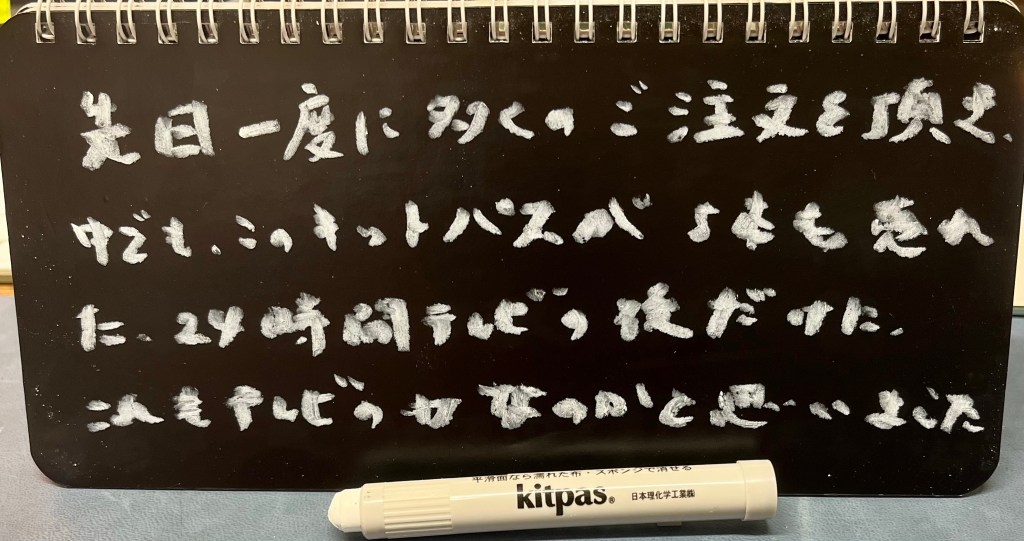 先日一度に多くのご注文を頂き、
中でも、このキットパスが 5本も売れ
た、24時間テレビの後だけに、
これもテレビの力なのかと思いました
平滑面なら濡れた布・スポンジで消せる
kitpas® 日本理化学工業㈱